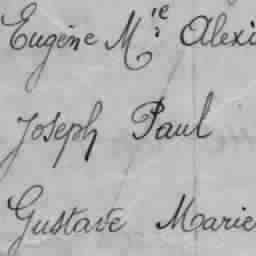 Eugène M.ie Alexi
Joseph Paul
Gustave Marie